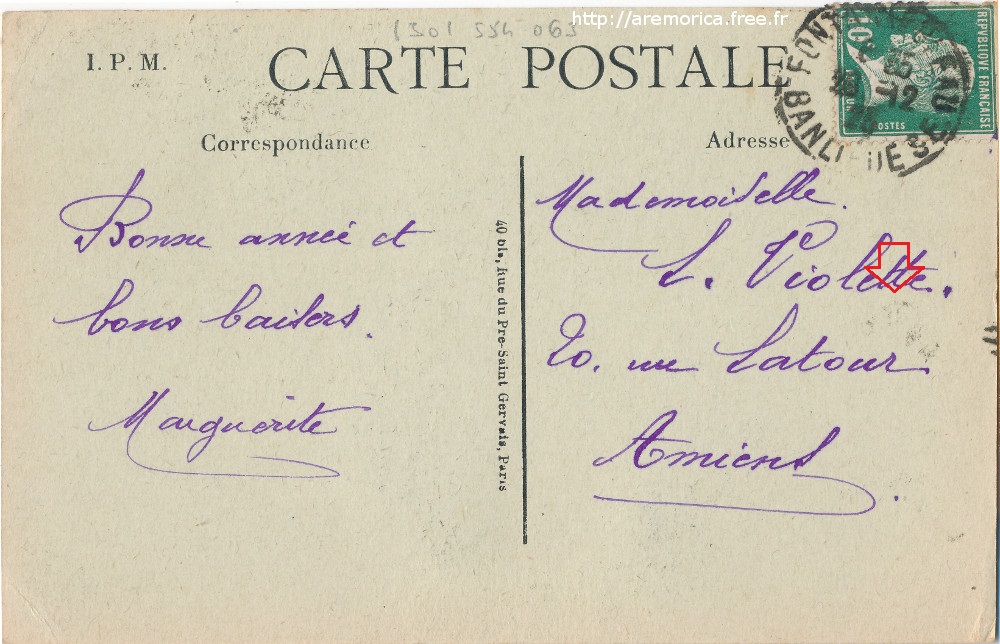 http://aremorica.free.fr
I. P. M.
CARTE POSTALE
Correspondance
Adresse
REPVBLIQVE FRANCAISE
10
POSTES
BANLIEUE
12
Bonne année et
bons baisers.
Marguerite
40 bis, Rue du Pre-Saint Gervais, Paris
Mademoiselle.
L. Violette.
20. rue Latour
Amiens.